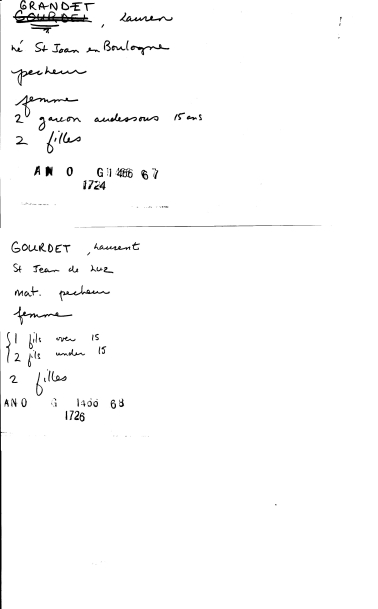 GRANDET
GOURDET, Lauren
né St Jean en Boulogne
pecheur
femme
2 garcon audessous 15 ans
2 filles
AN O G1 466 67
1724
GOURDET, Laurent
St Jean de Luz
mat. pecheur
femme
1 fils over 15
2 fils under 15
2 filles
ANO G 1466 68
1726